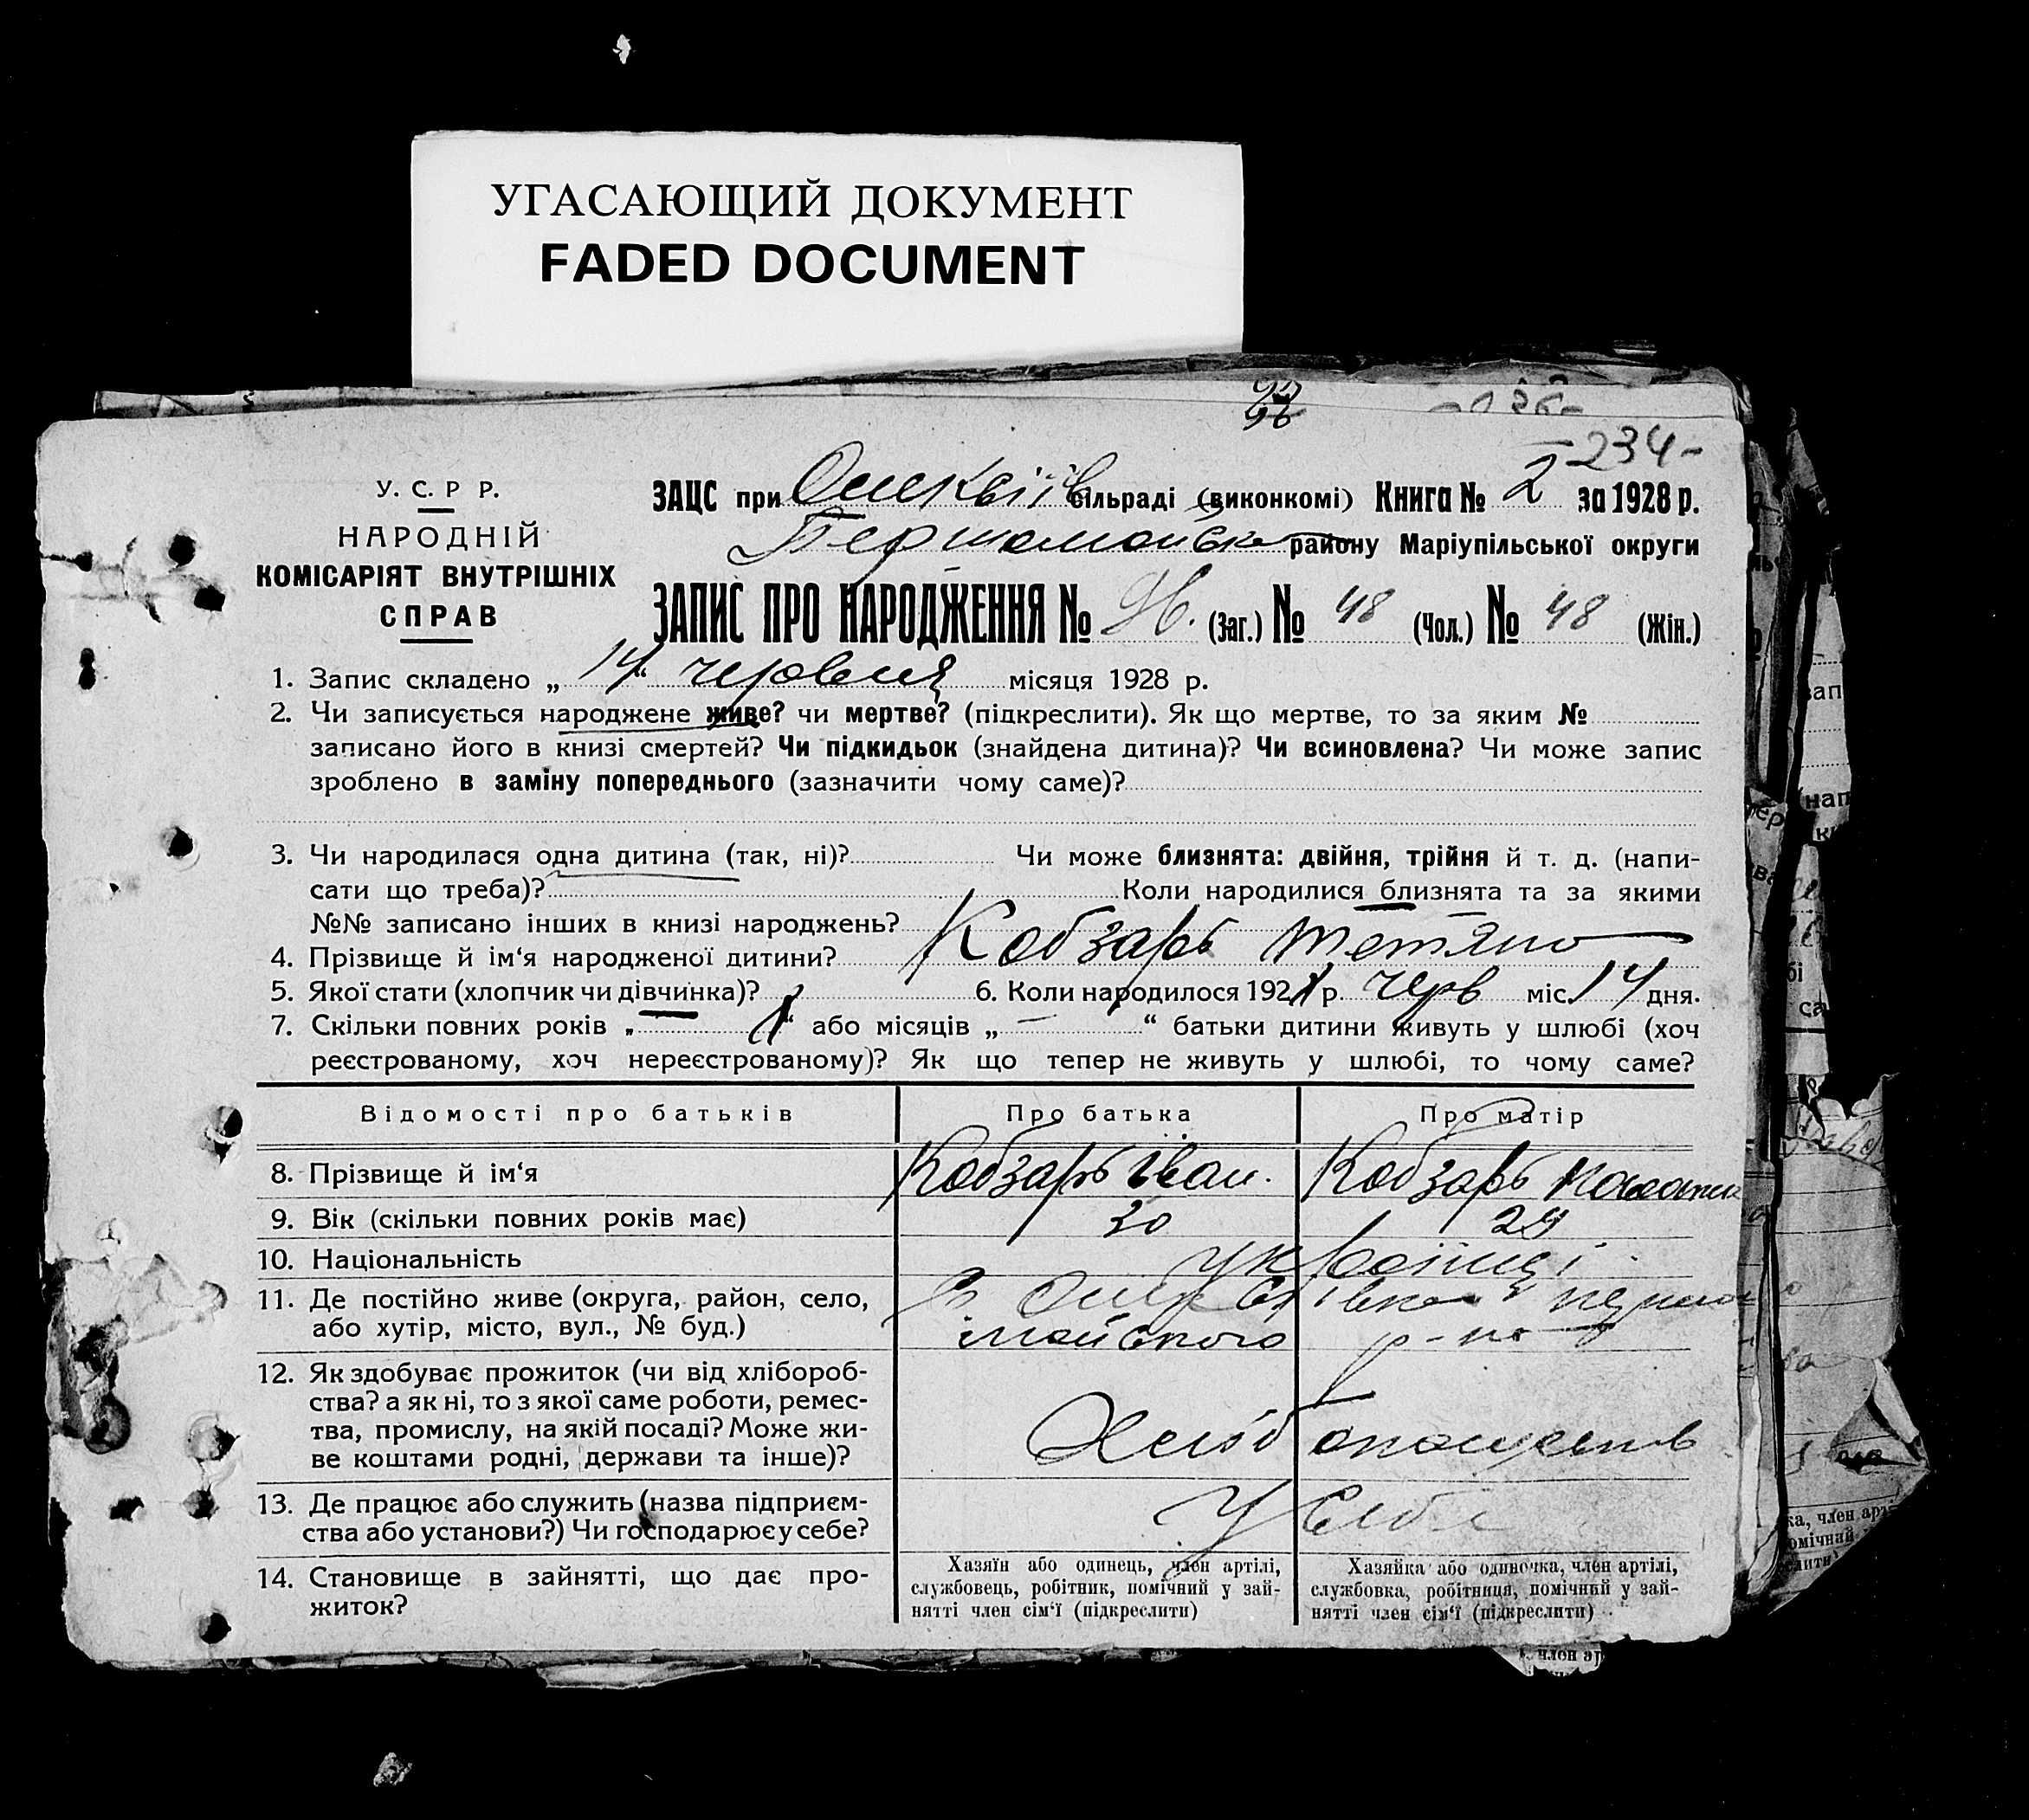 УГАСАЮЩИЙ ДОКУМЕНТ
FADED DOCUMENT
-234-
У. С. Р Р.
НАРОДНІЙ
КОМІСАРІЯТ ВНУТРІШНІХ
СПРАВ
ЗАЦС при сільраді (виконкомі) Книга № 2 за 1928 р.
Першомайськ району Маріупільської округи
ЗАПИС ПРО НАРОДЖЕННЯ № 96. (Заг.) № 48 (Чол.) № 48 (Жін.)
1. Запис складено „ 14 “ червня місяця 1928 р.
2. Чи записується народжене живе? чи мертве? (підкреслити). Як що мертве, то за яким №
записано його в книзі смертей? Чи підкидьок (знайдена дитина)? Чи всиновлена? Чи може запис
зроблено в заміну попереднього (зазначити чому саме)?
3. Чи народилася одна дитина (так, ні)? Чи може близнята: двійня, трійня й т. д. (напи-
сати що треба)? Коли народилися близнята та за якими
№№ записано інших в книзі народжень?
4. Прізвище й ім‘я народженої дитини? Кобзарь Тетяна
5. Якої стати (хлопчик чи дівчинка)? 6. Коли народилося 192 р. черв міс. 14 дня.
7. Скільки повних років „ “ або місяців „ — “ батьки дитини живуть у шлюбі (хоч
реєстрованому, хоч нереєстрованому)? Як що тепер не живуть у шлюбі, то чому саме?
Відомості про батьків Про батька Про матір
8. Прізвище й ім‘я Кобзарь Іван. Кобзарь
9. Вік (скільки повних років має) 30 29
10. Національність українці
11. Де постійно живе (округа, район, село, с. першо
або хутір, місто, вул., № буд.) майського р-на
12. Як здобуває прожиток (чи від хлібороб-
ства? а як ні, то з якої саме роботи, ремес-
тва, промислу, на якій посаді? Може жи- Хлібопашеств
ве коштами родні, держави та інше)?
13. Де працює або служить (назва підприєм- У себе
ства або установи?) Чи господарює у себе?
14. Становище в зайнятті, що дає про-
житок?
Хазяїн або одинець, член артілі,
службовець, робітник, помічний у зай-
нятті член сім‘ї (підкреслити)
Хазяйка або одиночка, член артілі,
службовка, робітниця, помічний у зай-
нятті член сім‘ї (підкреслити)